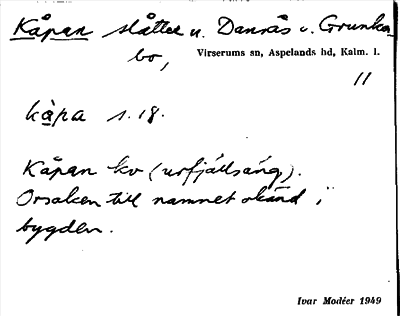 Kåpan slåtter u. Dansås o. Grunka-
bo,
Virserums sn, Aspelands hd, Kalm. l.
11
kåpa s. 18.
Kåpan kv (urfjällsäng).
Orsaken till namnet okänd i
bygden.
Ivar Modéer 1949